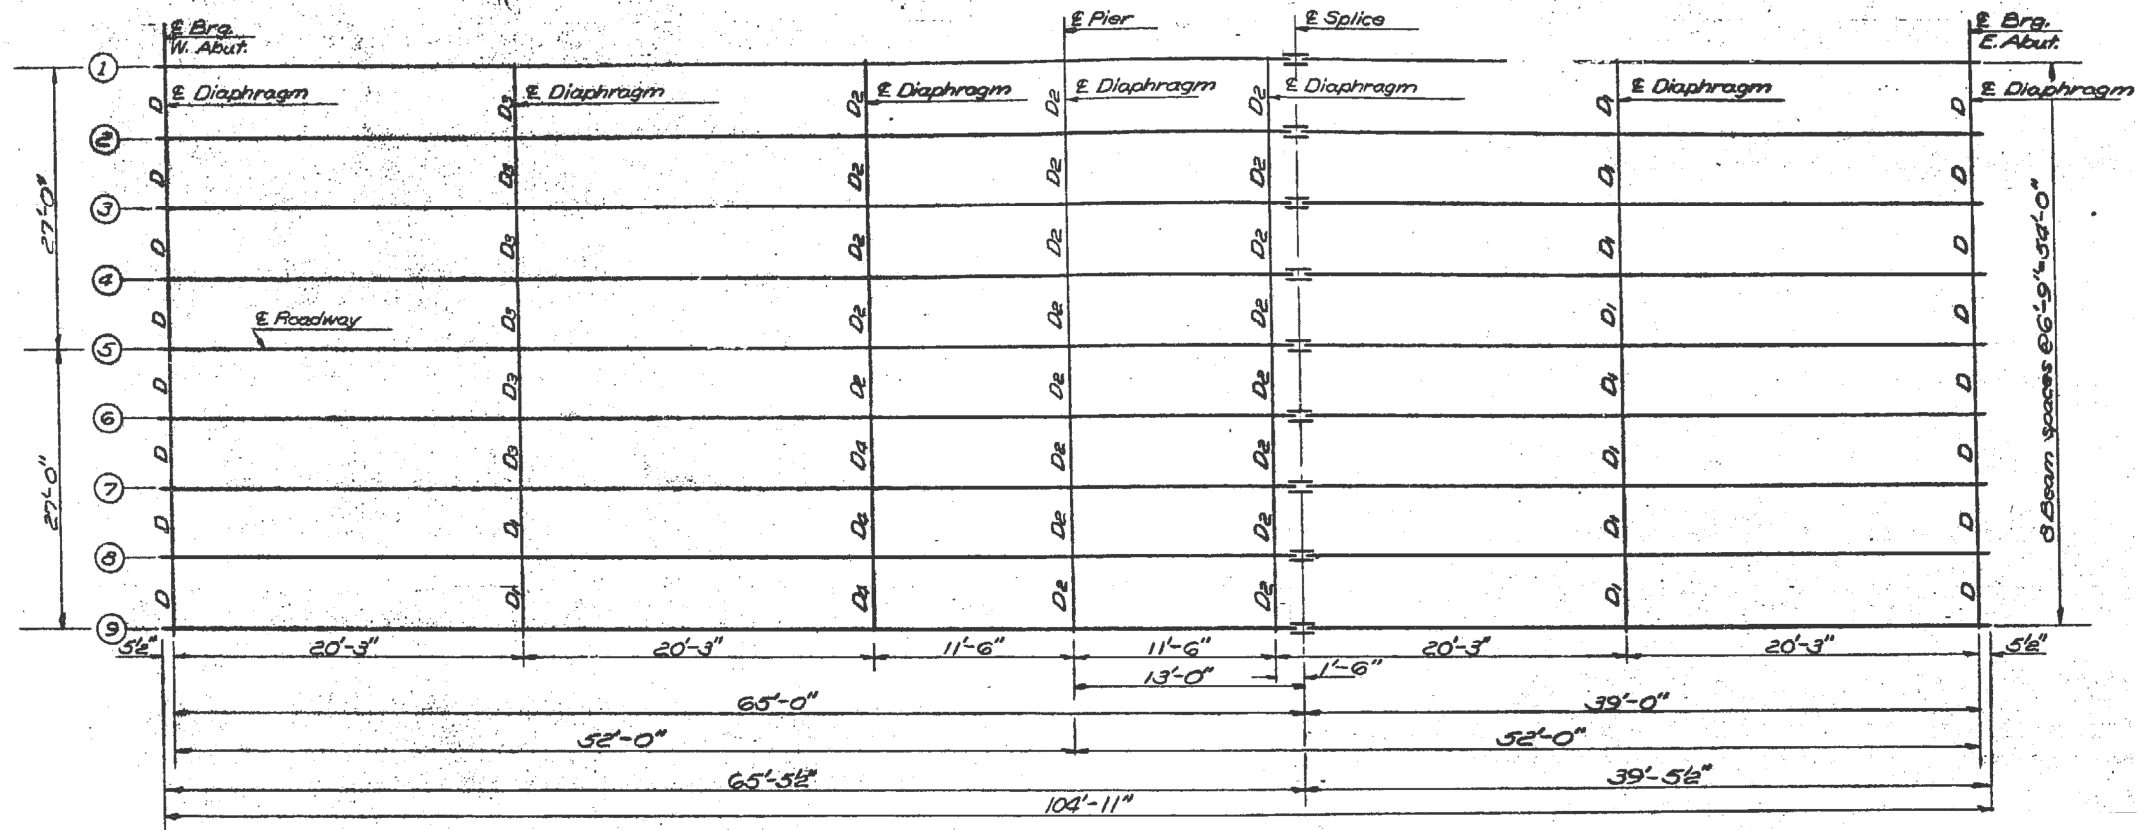 ℄ Brg.
W. Abut.
℄ Pier
℄ Splice
℄ Brg.
E. Abut.
1
℄ Diaphragm
℄ Diaphragm
℄ Diaphragm
℄ Diaphragm
℄ Diaphragm
℄ Diaphragm
℄ Diaphragm
D D3 D2 D2 D2 D1 D
2
D D3 D2 D2 D2 D1 D
3
D D3 D2 D2 D2 D1 D
4
D D3 D2 D2 D2 D1 D
℄ Roadway
5
D D3 D2 D2 D2 D1 D
6
D D3 D4 D2 D2 D1 D
7
D D1 D4 D2 D2 D1 D
8
D D1 D4 D2 D2 D1 D
9
27'-0"
27'-0"
8 Beam spaces @6'-9"=54'-0"
5½" 20'-3" 20'-3" 11'-6" 11'-6" 20'-3" 20'-3" 5½"
13'-0" 1'-6"
65'-0" 39'-0"
52'-0" 52'-0"
65'-5½" 39'-5½"
104'-11"